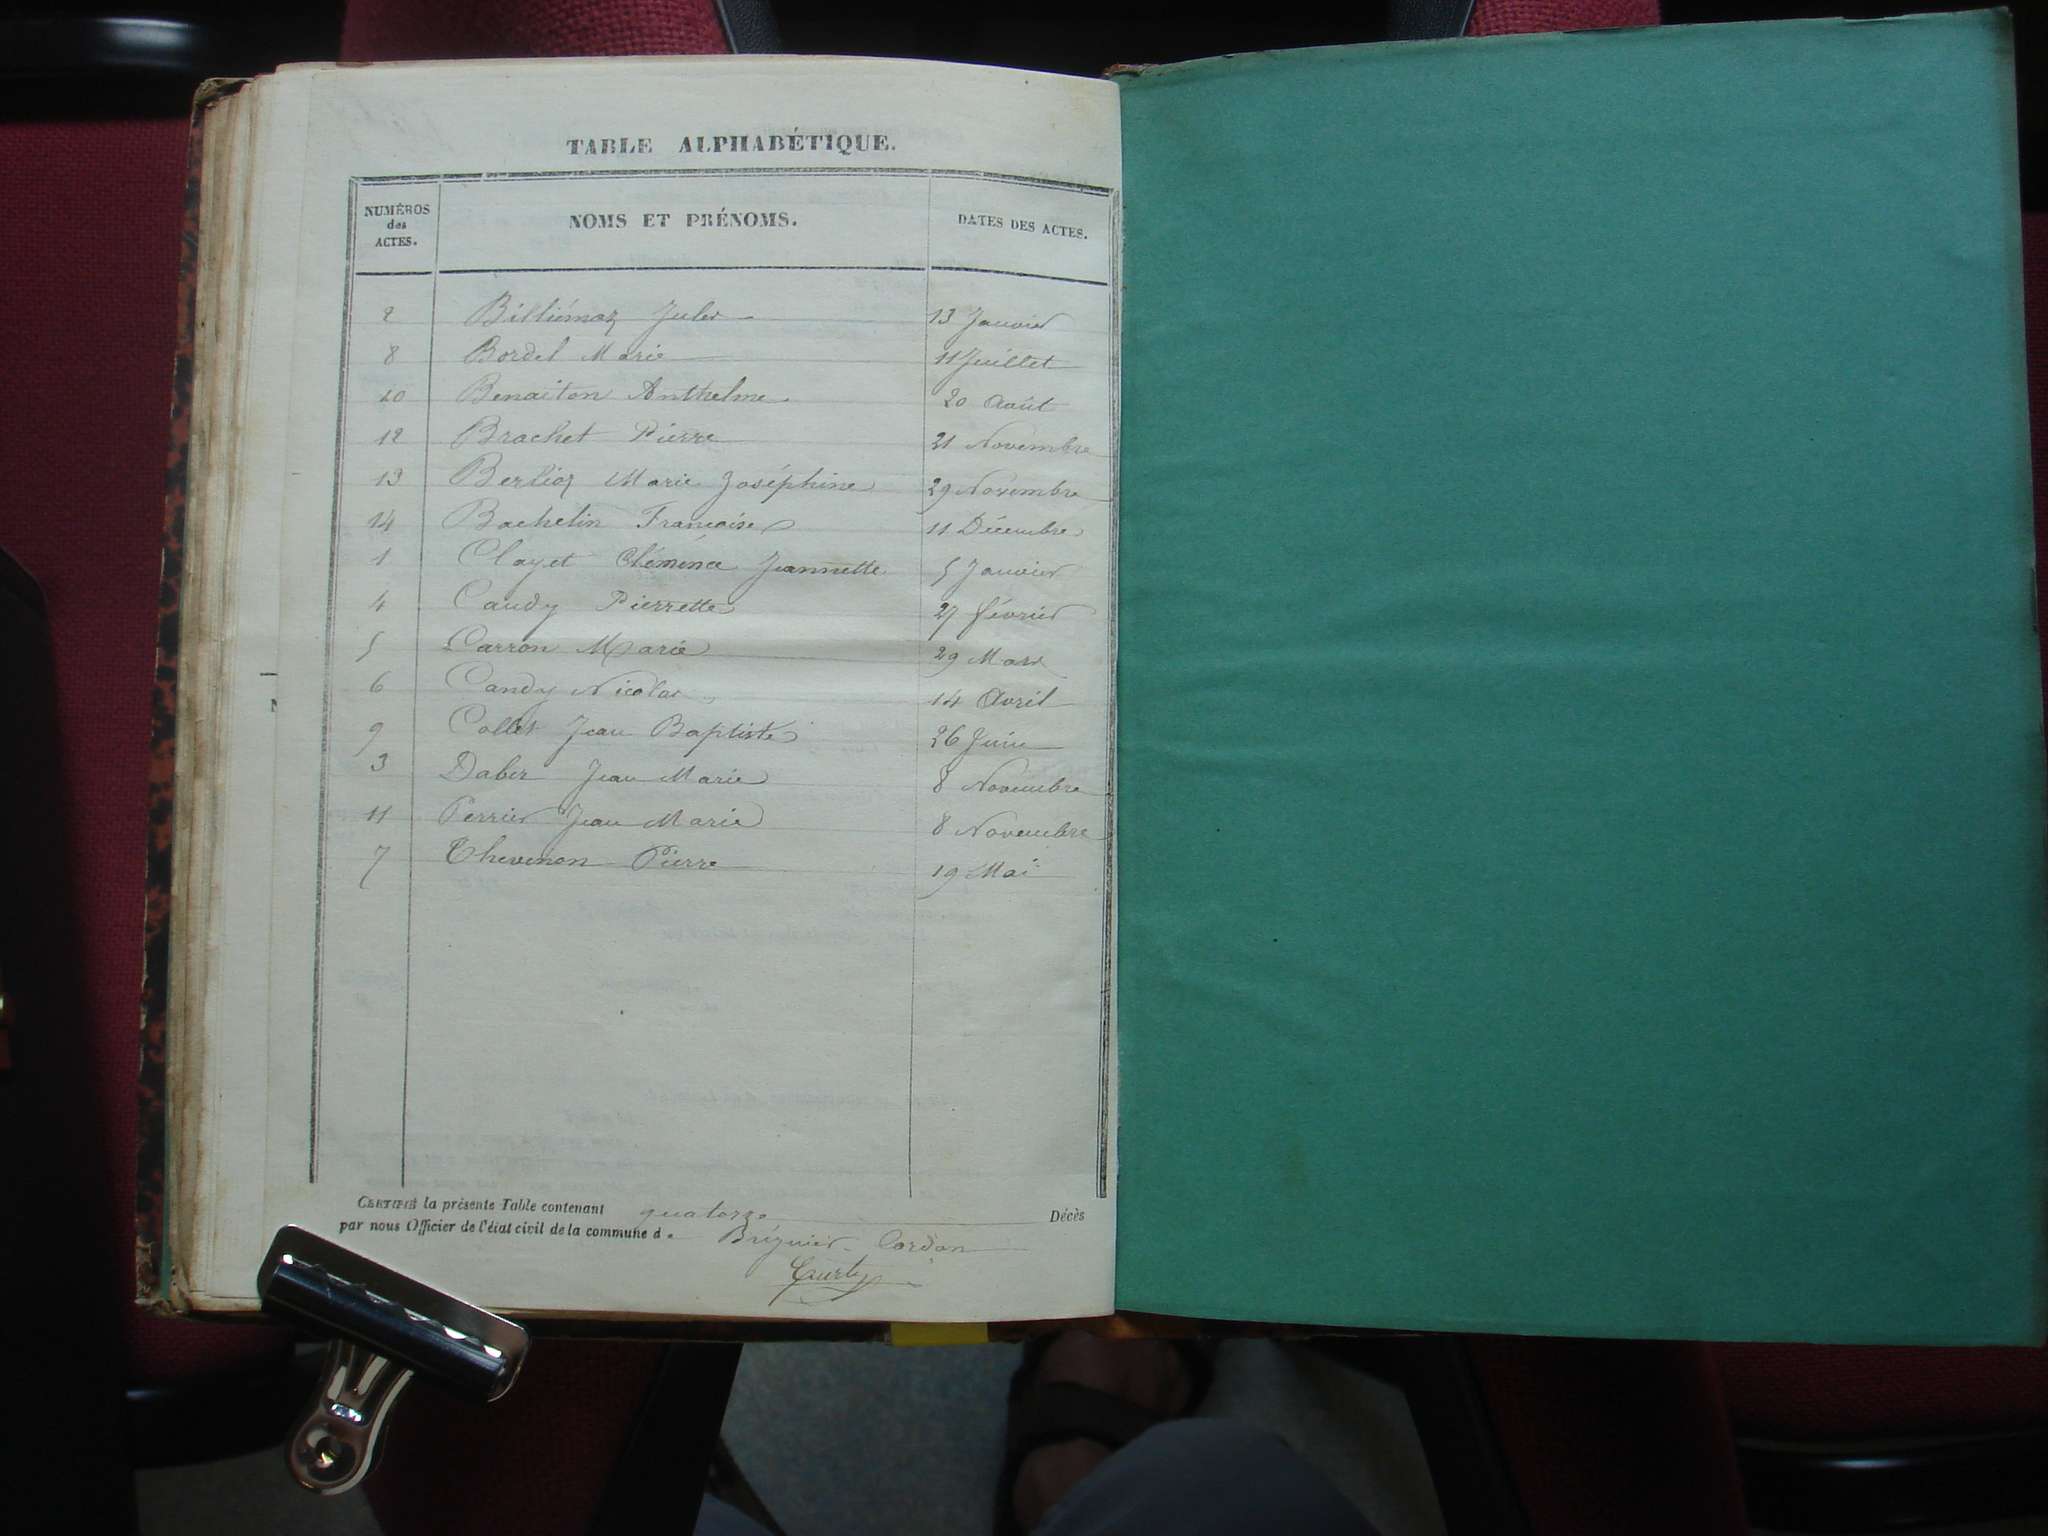 TABLE ALPHABÉTIQUE.
NUMÉROS des ACTES. NOMS ET PRÉNOMS. DATES DES ACTES.
2 Billiémaz Jules 13 Janvier
8 Bordel Marie 11 Juillet
10 Benaiton Anthelme 20 Août
12 Brachet Pierre 21 Novembre
13 Berlioz Marie Joséphine 29 Novembre
14 Bachelin Francoise 11 Décembre
1 Clayet Clémence Jeannette 5 Janvier
4 Candy Pierrette 27 février
5 Carron Marie 29 Mars
6 Candy Nicolas 14 Avril
9 Collet Jean Baptiste 26 Juin
3 Jean Marie 8 Novembre
11 Perrier Jean Marie 8 Novembre
7 Thevenon Pierre 19 Mai
CERTIFIÉ la présente Table contenant quatorze Décès
par nous Officier de l'état civil de la commune de Brégnier-Cordon